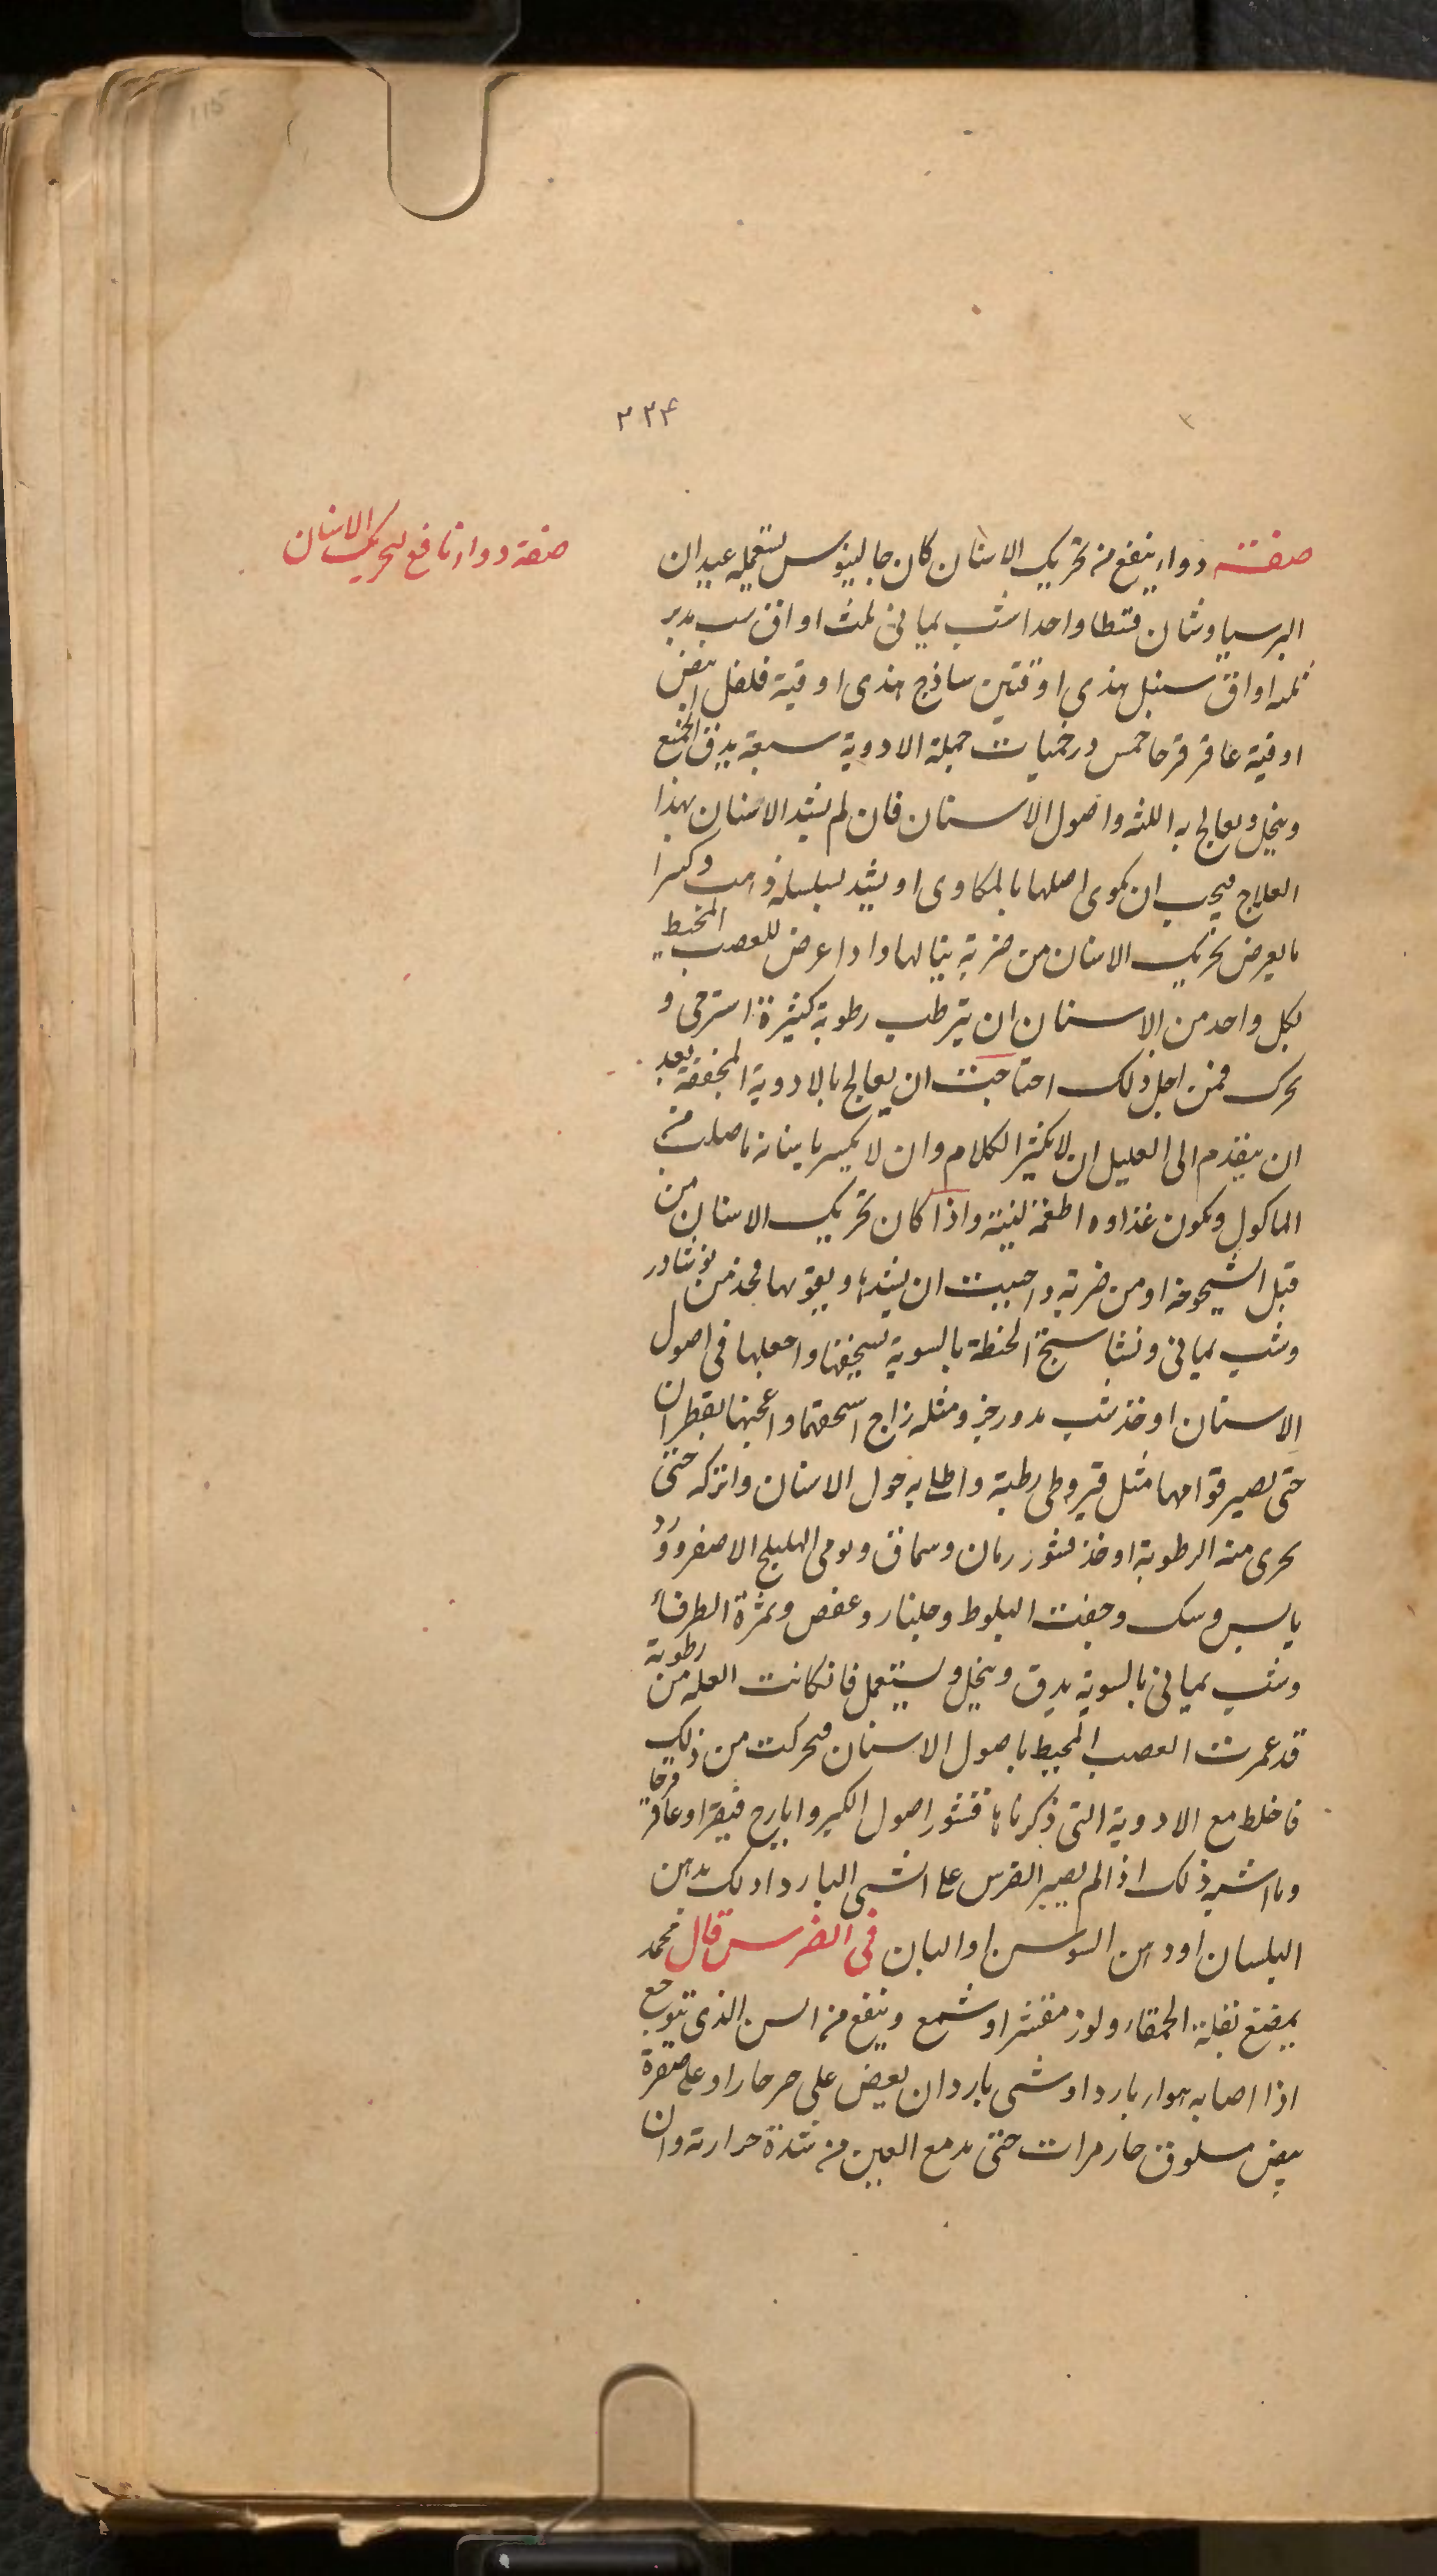 115
٢٢٤
صفة دواء نافع لتحريك الاسنان
صفة دواء ينفع من تحريك الاسنان كان جالينوس يستعمله عيدان
البرسياوشان قسطا واحدا شب يماني ثلث اواق شب مدبر
ثلثه اواق سنبل هندى اوقيتين ساذج هندى اوقية فلفل ابيض
اوقية عاقر قرحا خمس درخميات جملة الادوية سبعة يدق الجميع
وينخل ويعالج به اللثه واصول الاسنان فان لم يشد الاسنان بهذا
العلاج فيجب ان يكوى اصلها بالمكاوى او يشد بسلسلة ذهب وكثيرا
ما يعرض تحريك الاسنان من ضربة ينالها واذا عرض للعصب المحيط
بكل واحد من الاسنان ان يترطب رطوبة كثيرة استرخى و
تحرك فمن اجل ذلك احتاجت ان يعالج بالادوية المجففة بعد
ان يتقدم الى العليل ان لا يكثر الكلام وان لا يكسر باسنانه ما صلب من
الماكول ويكون غذاوه اطعمة لينية واذا كان تحريك الاسنان من
قبل الشيخوخة او من ضربة واحببت ان يشدها ويقويها فخذ من نوشادر
وشب يماني ونشاستج الحنطة بالسوية يسحقها واجعلها في اصول
الاسنان او خذ شب مدورخز ومثله زاج اسحقهما واعجنها بقطران
حتى يصير قوامها مثل قيروطى رطبة واطله به حول الاسنان واتركه حتى
يجرى منه الرطوبة او خذ قشور رمان وسماق ونوى الهليلج الاصفر وورد
يابس وسك وجفت البلوط وجلنار وعفص وثمرة الطرفاء
وشب يماني بالسوية يدق وينخل ويستعمل فان كانت العله من رطوبة
قد غمرت العصب المحيط باصول الاسنان فتحركت من ذلك
فاخلط مع الادوية التى ذكرناها قشور اصول الكبر وايارج فيقرا وعاقر قرحا
وما اشبه ذلك اذا لم يصبر الضرس على الشى البارد ادلك بدهن
البلسان او دهن السوسن او البان في الضرس قال محمد
يمضغ بقلة الحمقاء ولوز مقشر او شمع وينفع من السن الذى يتوجع
اذا اصابه هواء بارد او شى بارد ان يعض على خبز حار او على صفرة
بيض مسلوق حار مرات حتى يدمع العين من شدة حرارته وان